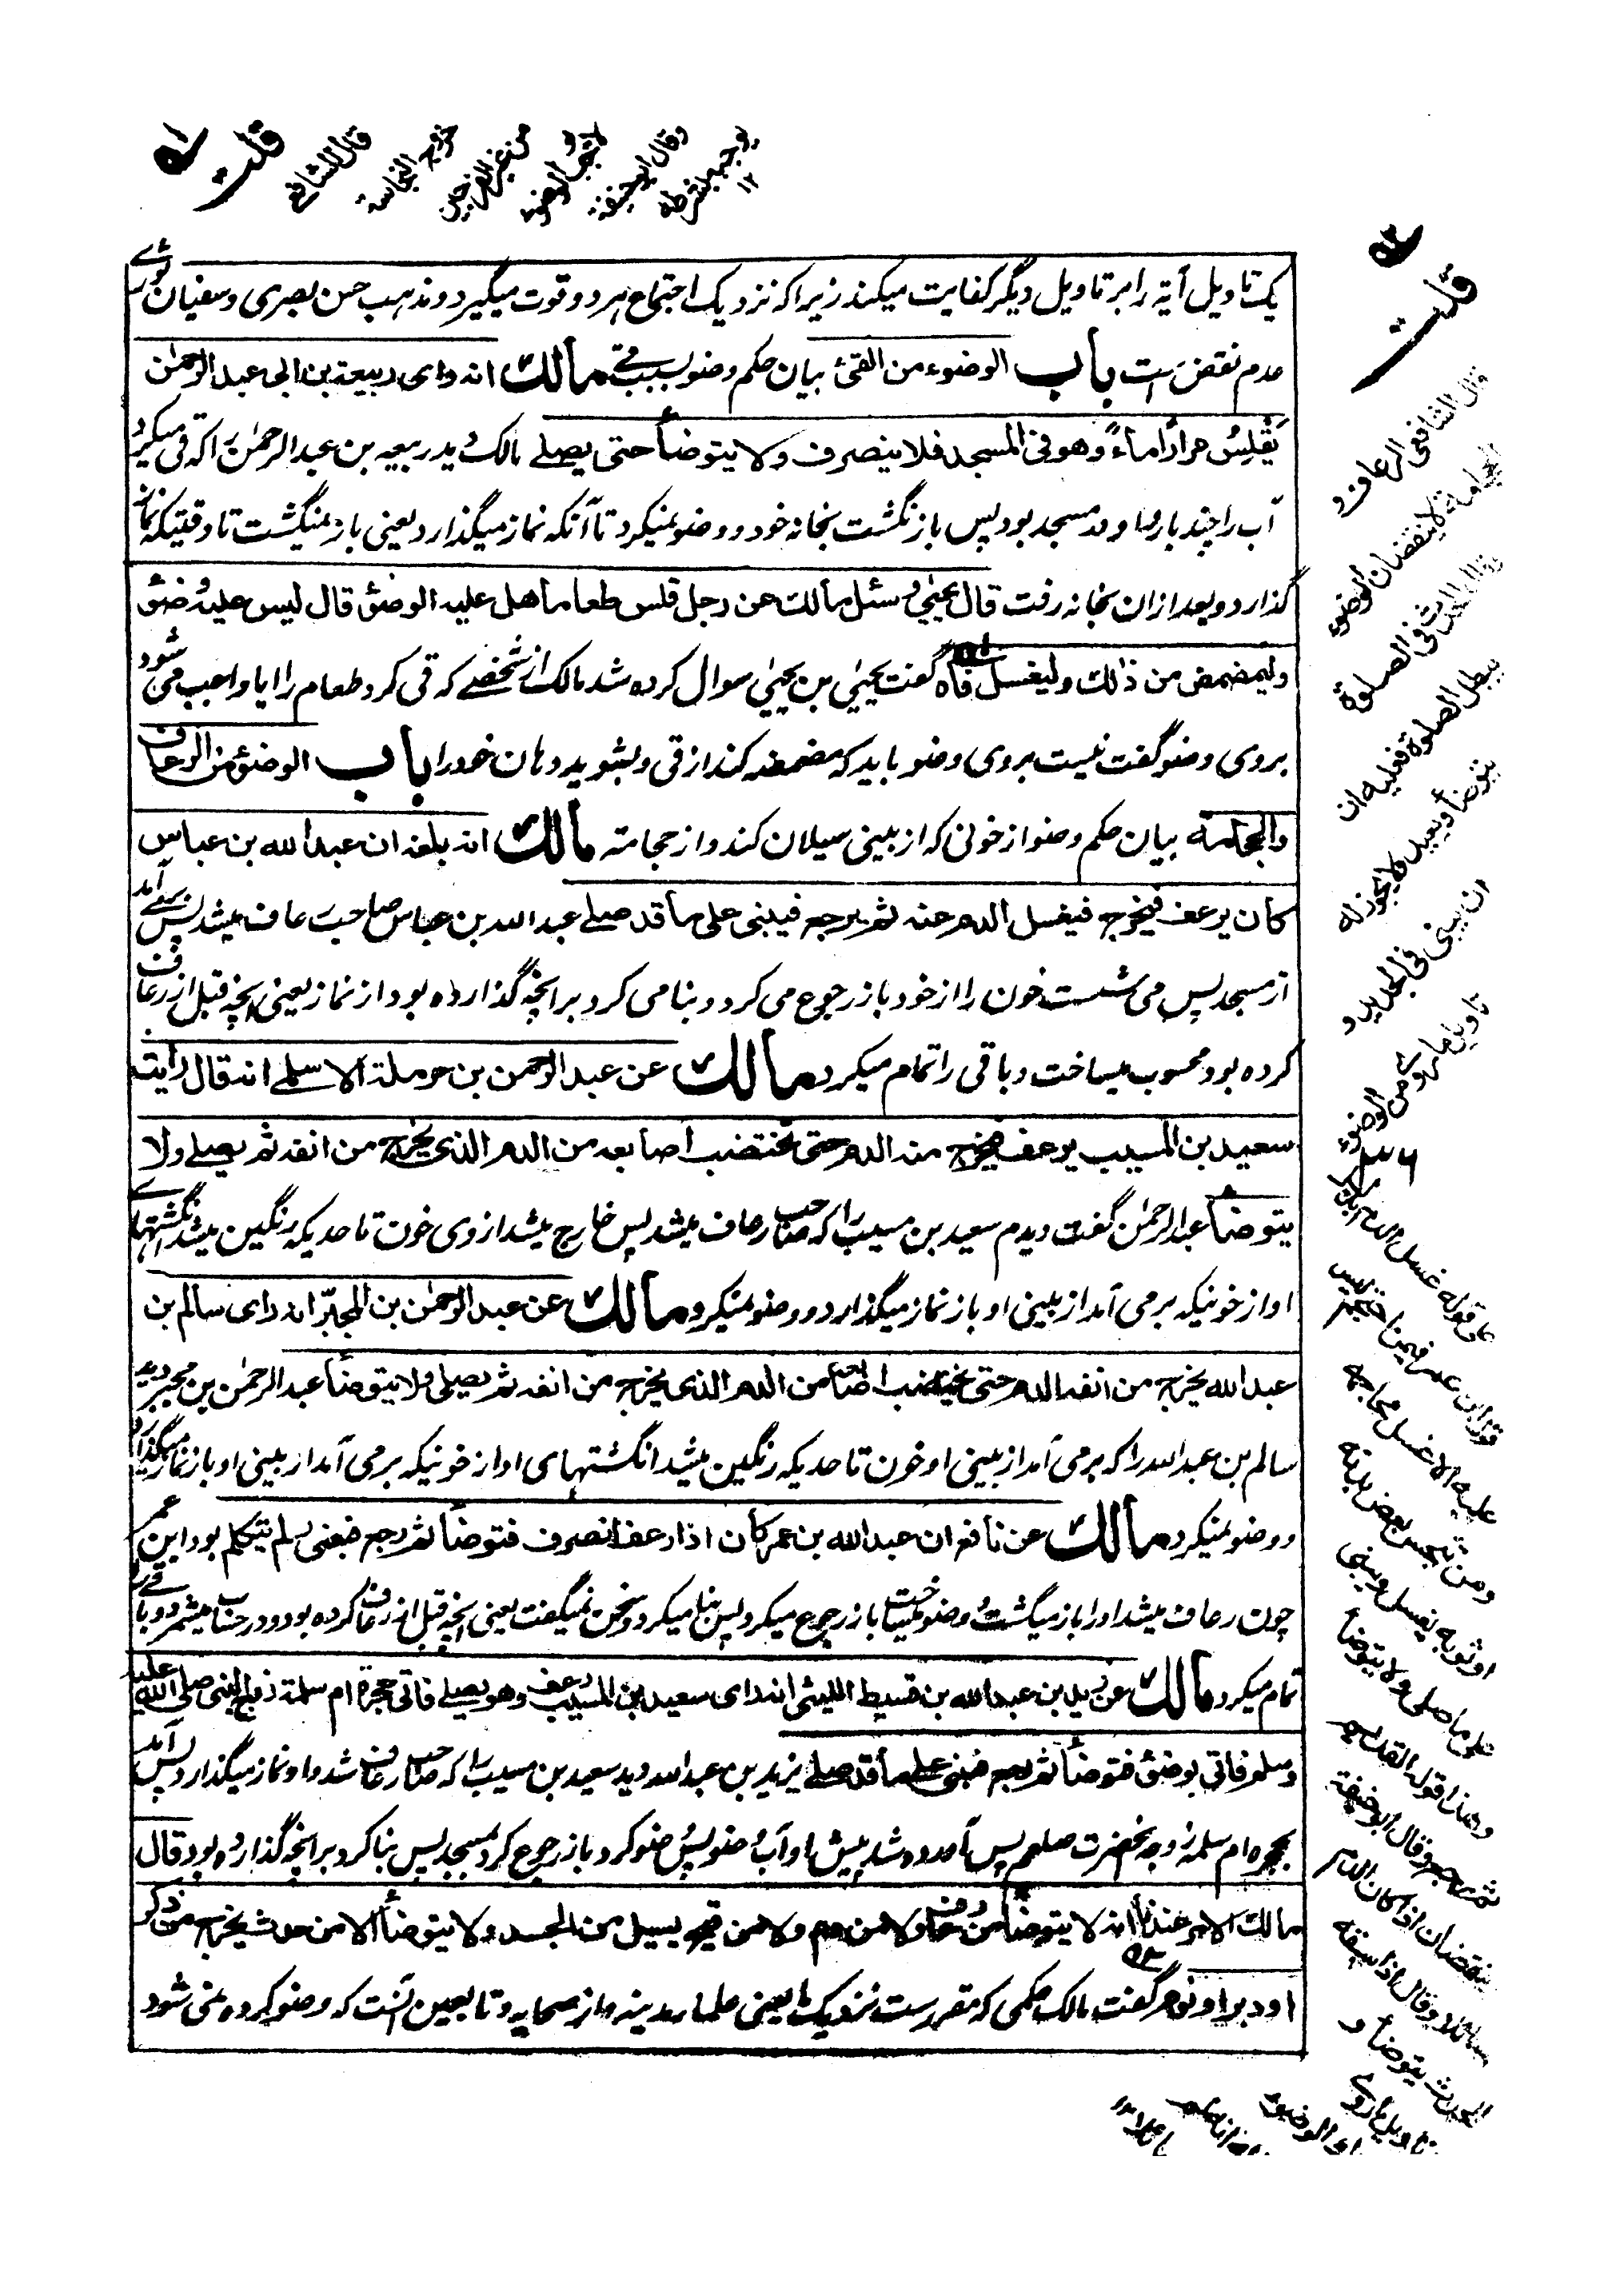 قلت ٥١
قال الشافعي
خروج النجاسة
من غير الفرجين
لا يوجب الوضوء
وقال ابو حنيفة
يوجبه بشرطه
١٢
یک تاویل آیه را بر تاویل دیگر کفایت میکند زیرا که نزدیک اجتماع هر دو قوت میگیرد و مذهب حسن بصری و سفیان ثوری
عدم نقض است باب الوضوء من القئ بیان حکم وضو بسبب قے مالك انه رای ربیعة بن ابی عبد الرحمٰن
یَقْلِسُ مراراً ماءً وهو فی المسجد فلا ینصرف ولا یتوضأ حتی یصلے مالک دید ربیعه بن عبد الرحمٰن را که قی میکرد
آب را چند بار و او در مسجد بود پس باز نگشت بخانه خود و وضو نمیکرد تا آنکه نماز میگذارد یعنی باز نمیگشت تا وقتیکه نماز
گذارد و بعد ازان بخانه رفت قال یحیٰی وسئل مالك عن رجل قلس طعاما هل علیه الوضوٴ قال لیس علیه وضوٴ
ولیمضمض من ذٰلك ولیغسل فاه گفت یحیٰی بن یحیٰی سوال کرده شد مالک از شخصے که قی کرد طعام را ایا واجب می شود
بروی وضو گفت نیست بروی وضو باید که مضمضه کند از قی و بشوید دهان خود را باب الوضوٴ من الرعاف
والحجامة بیان حکم وضو از خونی که از بینی سیلان کند و از حجامة مالك انه بلغه ان عبد الله بن عباس
کان یرعف فیخرج فیغسل الدم عنه ثم یرجع فیبنی علی ما قد صلے عبد الله بن عباس صاحب رعاف میشد پس بر می آمد
از مسجد پس می شست خون را از خود باز رجوع می کرد و بنا می کرد بر آنچه گذارده بود از نماز یعنی آنچه قبل از رعاف
کرده بود محسوب میساخت و باقی را تمام میکرد مالك عن عبد الرحمن بن حرملة الاسلمے انه قال رایت
سعید بن المسیب یرعف فیخرج منه الدم حتی تختضب اصابعه من الدم الذی یخرج من انفه ثم یصلے ولا
یتوضأ عبد الرحمٰن گفت دیدم سعید بن مسیب را که صاحب رعاف میشد پس خارج میشد از وی خون تا حدیکه رنگین میشد انگشتهاے
او از خونیکه بر می آمد از بینی او باز نماز میگذارد و وضو نمیکرد مالك عن عبد الرحمٰن بن المجبّر انه رای سالم بن
عبد الله یخرج من انفه الدم حتی تختضب اصابعه من الدم الذی یخرج من انفه ثم یصلی ولا یتوضأ عبد الرحمٰن بن مجبر دید
سالم بن عبد الله را که بر می آمد از بینی او خون تا حدیکه رنگین میشد انگشتهای او از خونیکه بر می آمد از بینی او باز نماز میگذارد
و وضو نمیکرد مالك عن نافع ان عبد الله بن عمر کان اذا رعف انصرف فتوضأ ثم رجع فبنی ولم یتکلم بود ابن عمر
چون رعاف میشد او را باز میگشت و وضو میساخت باز رجوع میکرد پس بنا میکرد و سخن نمیگفت یعنی آنچه قبل از رعاف کرده بود در حساب میشمرد و باقی را
تمام میکرد مالك عن یزید بن عبد الله بن قسیط اللیثی انه رای سعید بن المسیب رعف وهو یصلے فاتی حجرة ام سلمة زوج النبی صلی الله علیه
وسلم فاتی بوضوٴ فتوضأ ثم رجع فبنی علی ما قد صلے یزید بن عبد الله دید سعید بن مسیب را که صاحب رعاف شد و او نماز میگذارد پس آمد
بحجره ام سلمة زوجه آنحضرت صلعم پس آورده شد پیش او آب وضو پس وضو کرد باز رجوع کرد بمسجد پس بنا کرد بر آنچه گذارده بود قال
مالك الامر عندنا انه لا یتوضأ من رعاف ولا من دم ولا من قیح یسیل من الجسد ولا یتوضأ الا من حدث یخرج من ذکر
او دبر او نوم گفت مالک حکمی که مقررست نزدیک ما یعنی علماء مدینه از صحابه و تابعین آنست که وضو کرده نمی شود
٥٣
قلت ٥٢
قال الشافعي الرعاف و
الحجامة لا ينقضان الوضوء
يبطل الصلوة فعليه ان
يتوضأ ويعيد ولا يجوز له
ان يبنى فى الجديد و
تاويل ما روى من الوضوء
عليه الا غسل محاجمه
ومن تنجس بعض بدنه
او ثوبه يغسل ويبنى
على ما صلى ولا يتوضأ
وهذا قوله القديم
وقال ابو حنيفة
ينقضان اذا كان الدم
سائلا وقال اذا سبقه
الحدث يتوضأ و